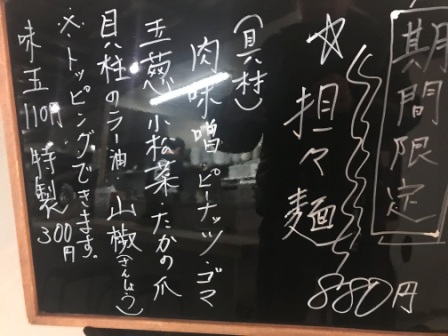 期間限定
☆担々麺
880円
(具材)
肉味噌・ピーナッツ・ゴマ
玉葱・小松菜・たかの爪
貝柱のラー油 山椒(さんしょう)
※トッピングできます。
味玉110円 特製300円